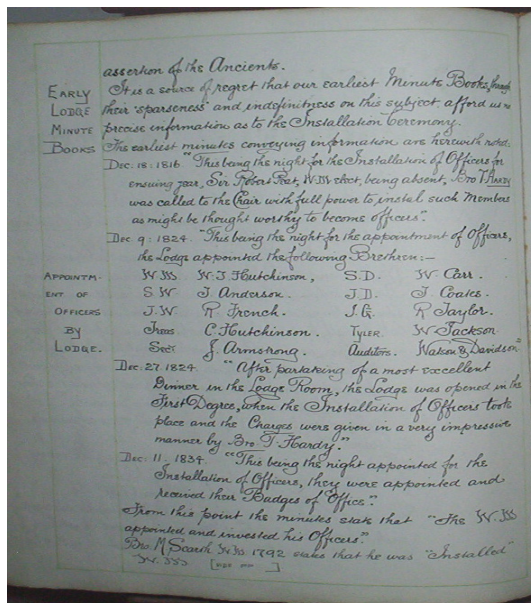 assertion of the Ancients.
EARLY LODGE MINUTE BOOKS
It is a source of regret that our earliest Minute Books, through
their "sparseness" and indefinitness on this subject, afford us no
precise information as to the Installation Ceremony.
The earliest minutes conveying information are herewith noted:
Dec. 18: 1816 "This being the night for the Installation of Officers for
ensuing year, Sir Robert Peat, W.M. elect, being absent, Bro T. Hardy
was called to the Chair with full power to instal such Members
as might be thought worthy to become officers".
Dec. 9: 1824. "This being the night for the appointment of Officers,
the Lodge appointed the following Brethren:—
APPOINTMENT OF OFFICERS BY LODGE.
W.M. W. J. Hutchinson, S.D. W. Carr.
S.W J. Anderson. J.D. J. Coates.
J.W. R. French. I.G. R Taylor.
Treas. C. Hutchinson. Tyler. W Jackson
Secy J. Armstrong. Auditors. Watson & Davidson"
Dec. 27. 1824. "After partaking of a most excellent
Dinner in the Lodge Room, the Lodge was opened in the
First Degree, when the Installation of Officers took
place and the Charges were given in a very impressive
manner by Bro. T. Hardy."
Dec. 11. 1834. "This being the night appointed for the
Installation of Officers, they were appointed and
received their Badges of Office".
From this point the minutes state that "The W.M
appointed and invested his Officers."
Bro. M. Scarth W.M. 1792 states that he was "Installed"
W.M.